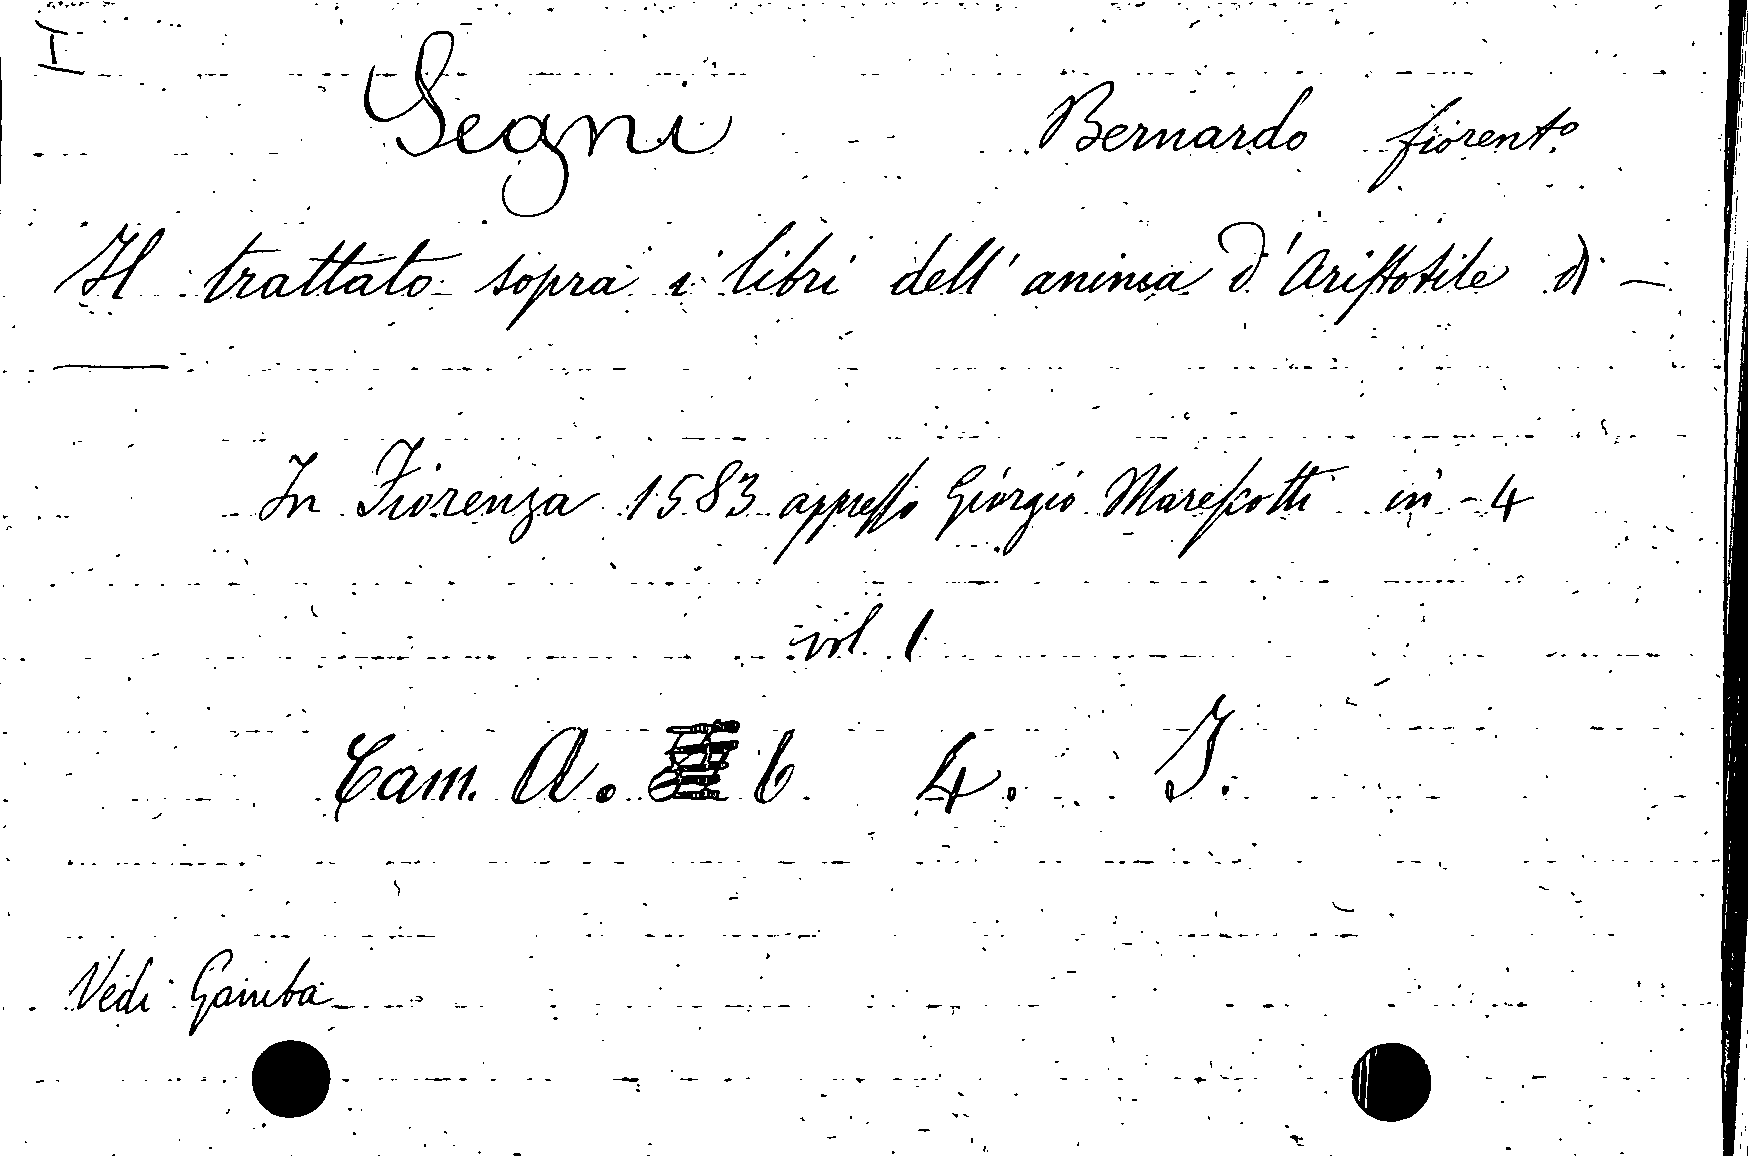 I
Segni Bernardo fiorentº
Il trattato sopra i libri dell' anima d'Aristotile di —
—
In Fiorenza 1583 appresso Giorgio Marescotti in - 4
vol. 1
Cam. A. b 4. I.
Vedi Gamba